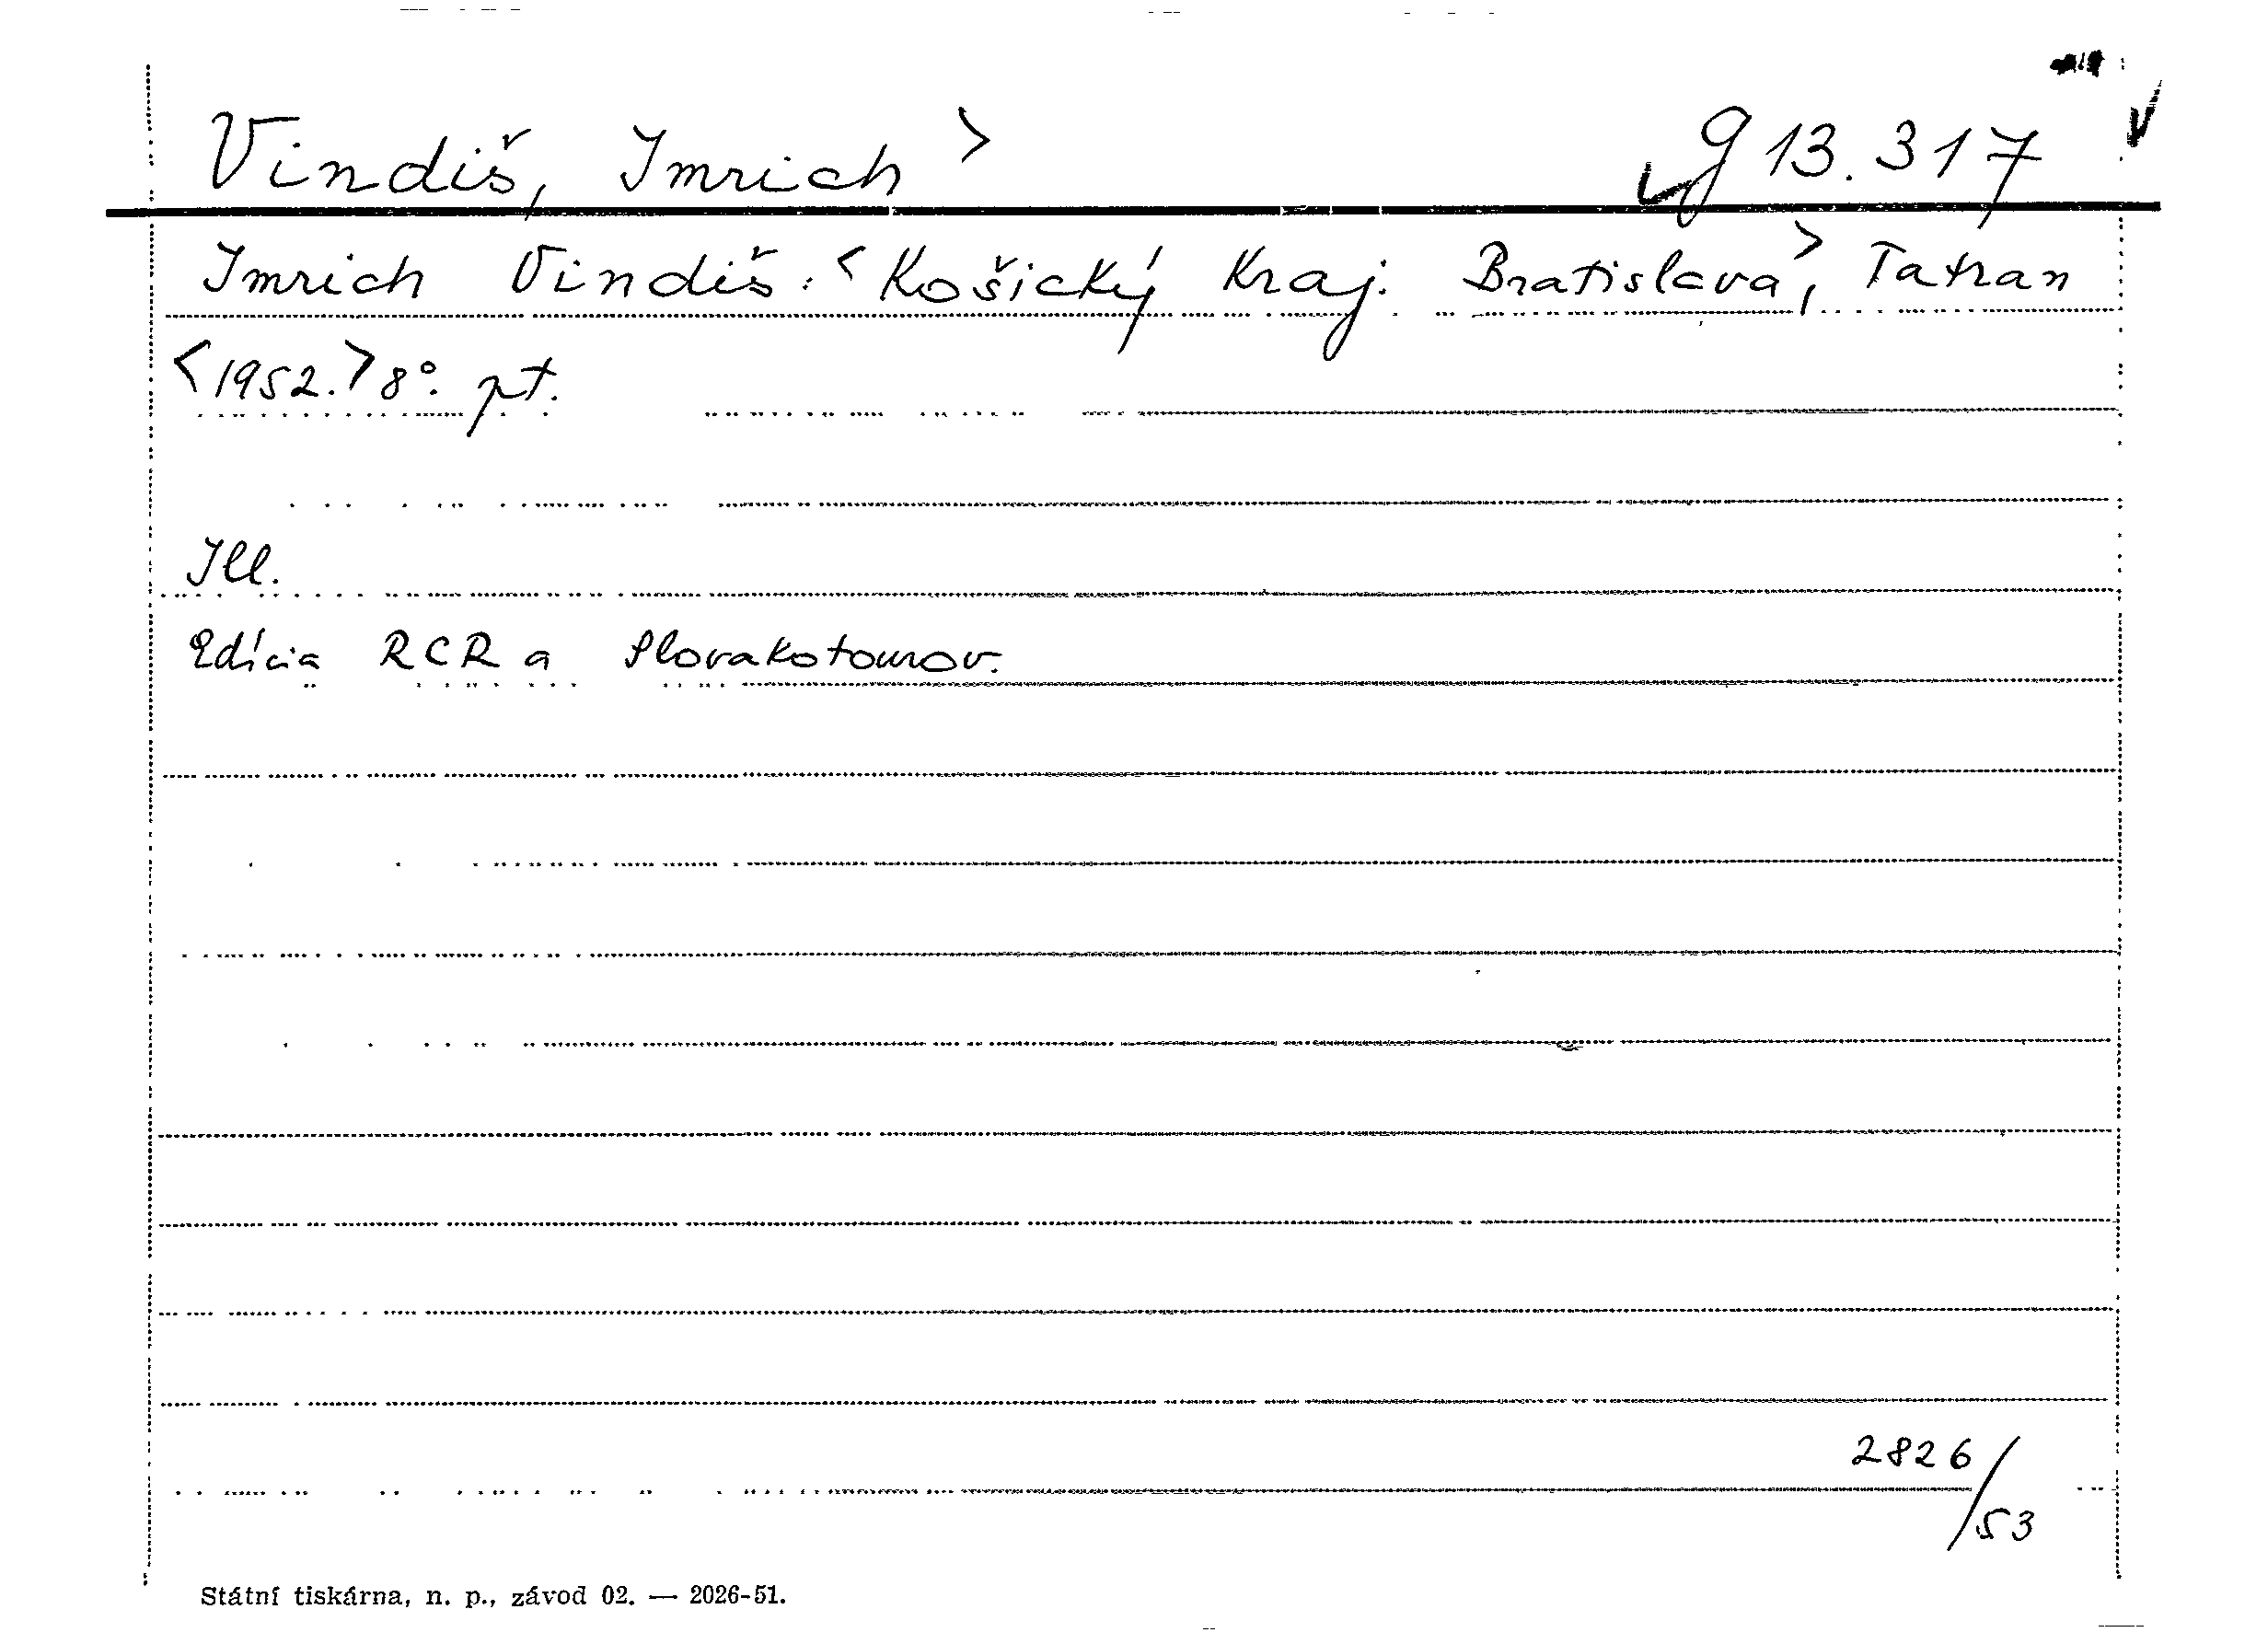 Vindiš, Imrich > g 13.317
Imrich Vindiš: <Košický Kraj. Bratislava>, Tatran
<1952.> 8°. pt.
Ill.
Edícia RCR a Slovakotourov.
2826/53
Státní tiskárna, n. p., závod 02. — 2026-51.